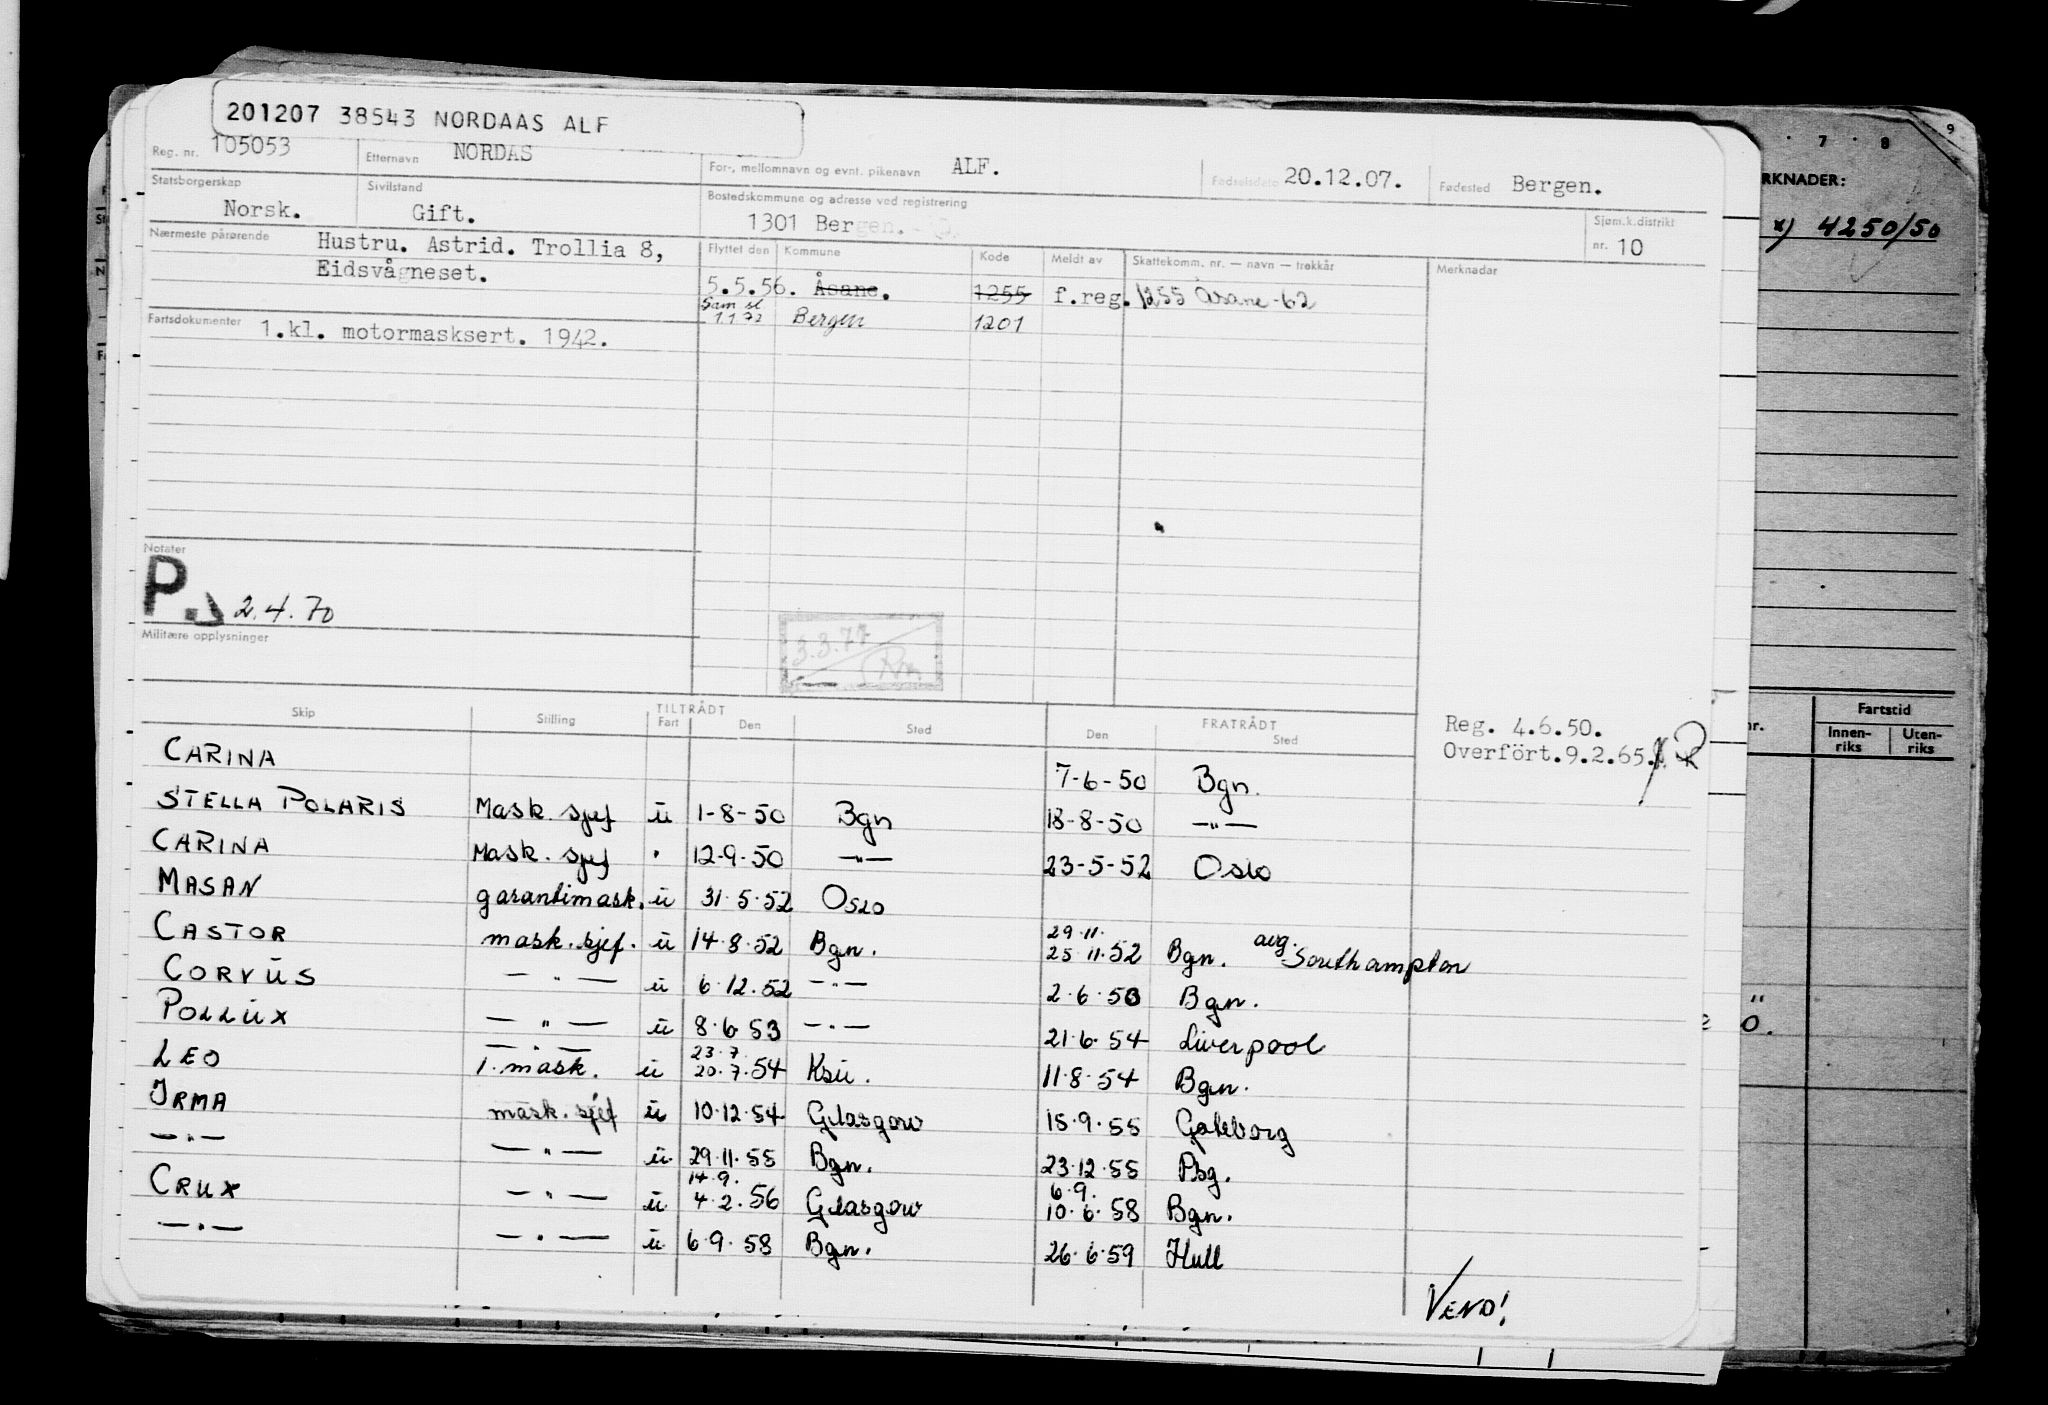 201207 38543 NORDAAS ALF
Reg. nr. 105053 Etternavn NORDAS For-, mellomnavn og evnt. pikenavn ALF. Fødselsdato 20.12.07. Fødested Bergen.
Statsborgerskap Norsk. Sivilstand Gift. Bostedskommune og adresse ved registrering 1301 Bergen. Sjøm.k.distrikt nr. 10
Nærmeste pårørende Hustru. Astrid. Trollia 8,
Eidsvågneset.
Flyttet den Kommune Kode Meldt av Skattekomm. nr. — navn — trekkår Merknader
5.5.56. Åsane. 1255 f.reg. 1255 Åsane -62
Sam sl.
1.1 72 Bergen 1201
Fartsdokumenter 1.kl. motormasksert. 1942.
Notater
P. 2.4.70
Militære opplysninger
3.3.77
Skip Stilling TILTRÅDT Fart Den Sted FRATRÅDT Den Sted
Reg. 4.6.50.
Overfört.9.2.65.
CARINA 7-6-50 Bgn.
STELLA POLARIS Mask. sjef ü 1-8-50 Bgn 18-8-50 —"—
CARINA Mask. sjef " 12-9-50 —"— 23-5-52 Oslo
MASAN garantimask. ü 31.5.52 Oslo
CASTOR mask. sjef. ü 14.8.52 Bgn. 29.11. 25.11.52 Bgn. avg. Southampton
CORVUS —"— ü 6.12.52 —"— 2.6.53 Bgn.
POLLUX —"— ü 8.6.53 —"— 21.6.54 Liverpool
LEO —"— 1. mask. ü 23.7. 20.7.54 Ksü. 11.8.54 Bgn.
IRMA mask. sjef ü 10.12.54 Glasgow 15.9.55 Gøteborg
—"— —"— ü 29.11.55 Bgn. 23.12.55 Pbg.
CRUX —"— ü 14.9. 4.2.56 Glasgow 6.9. 10.6.58 Bgn.
—"— —"— ü 6.9.58 Bgn. 26.6.59 Hull
VEND!
7 8 9
RKNADER:
x) 4250/50
nr. Fartstid
Innen-riks Uten-riks
"
0.